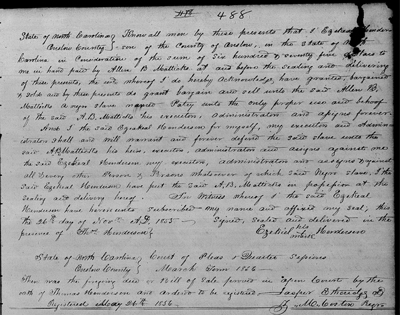 488
State of North Carolina Know all men by these presents that I Ezekiel Henderson
Onslow County of the County of Onslow, in the State of North
Carolina in Consideration of the sum of Six hundred & seventy five dollars to
me in hand paid by Allen B Mattocks at and before the sealing and delivering
of these presents, the receipt whereof I do hereby Acknowledge, have granted, bargained
& sold and by these presents do grant bargain and sell unto the said Allen B.
Mattocks A negro slave named Patsy unto the only proper use and behoof
of the said A.B. Mattocks his executors, Administrators and assigns forever.
And I the said Ezekiel Henderson for myself, my executors and Adminis-
trators shall and will warrant and forever defend the said slave unto the
said A.B. Mattocks his heirs, executors, administrators and assigns against me
the said Ezekiel Henderson my executors, administrators and assigns & against
all Every other Person & Persons Whatsoever of which said Negro slave, I the
said Ezekiel Henderson have put the said A.B. Mattocks in possession at the
sealing and delivery hereof. In Witness whereof I the said Ezekiel
Henderson have hereunto subscribed my name and affixed my seal this
the 26th day of Novr A.D. 1855 Signed, Sealed and delivered in the
presence of Thos Henderson Ezekiel his mark Henderson
State of North Carolina Court of Pleas & Quarter Sessions
Onslow County March Term 1856
Then was the foregoing deed or Bill of Sale proven in Open Court by the
oath of Thomas Henderson and ordered to be registered Jasper Etheredge
Registered May 24th 1856